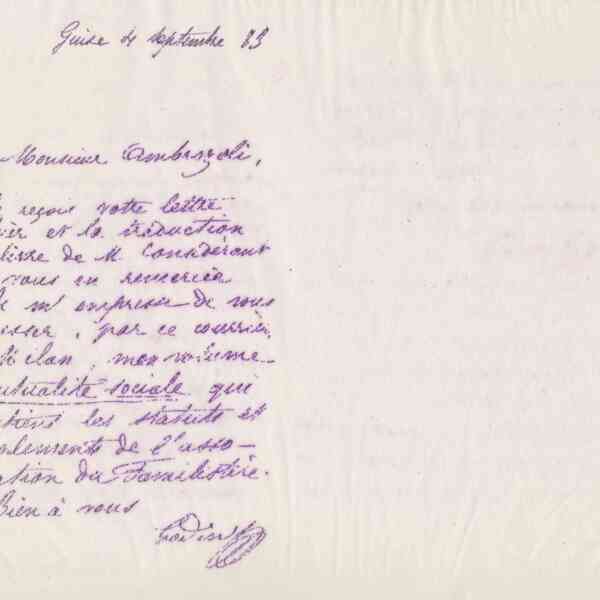 Guise 4 Septembre 83
Monsieur Ambrozoli,
reçois votre lettre
et la traduction
de M Considérant
vous en remercie
m'empresse de vous
par ce courrier,
Milan, mon volume
mutualité sociale qui
les statuts et
règlements de l'asso-
ation du Familistère.
Bien à vous
Godin